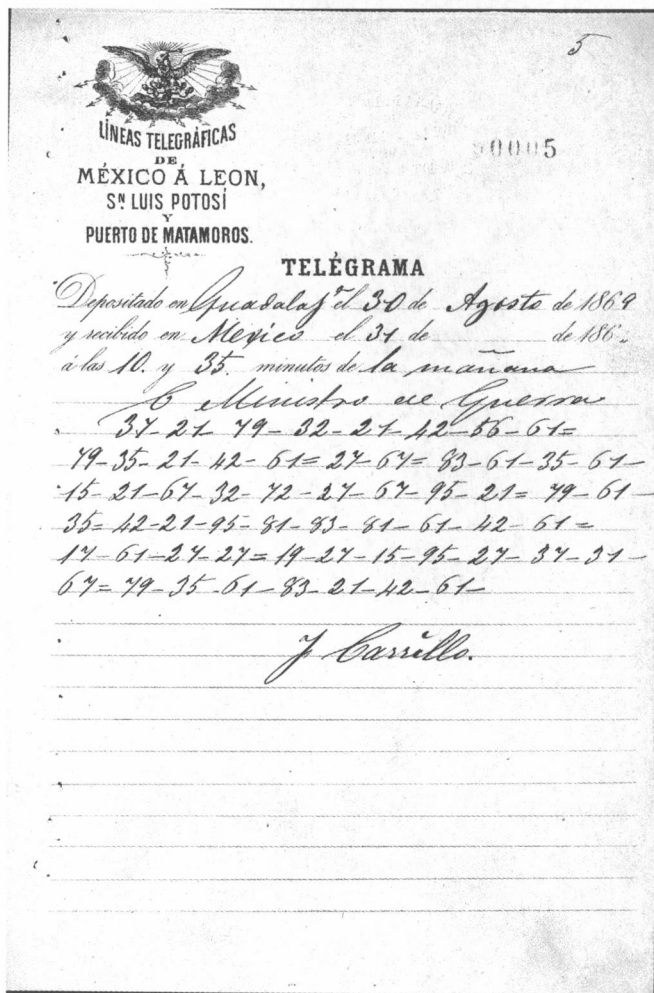 5
LÍNEAS TELEGRÁFICAS
DE
MÉXICO Á LEON,
Sⁿ LUIS POTOSÍ
Y
PUERTO DE MATAMOROS.
00005
TELÉGRAMA
Depositado en Guadalajª el 30 de Agosto de 1869
y recibido en Mexico el 31 de de 186
á las 10. y 35. minutos de la mañana
C Ministro de Guerra
37-21-79-32-21-42-56-61=
79-35-21-42-61=27-67=83-61-35-61-
15-21-67-32-72-27-67-95-21=79-61-
35=42-21-95-81-83-81-61-42-61=
17-61-27-27=19-27-15-95-27-37-31-
67=79-35-61-83-21-42-61-
J Carrillo.